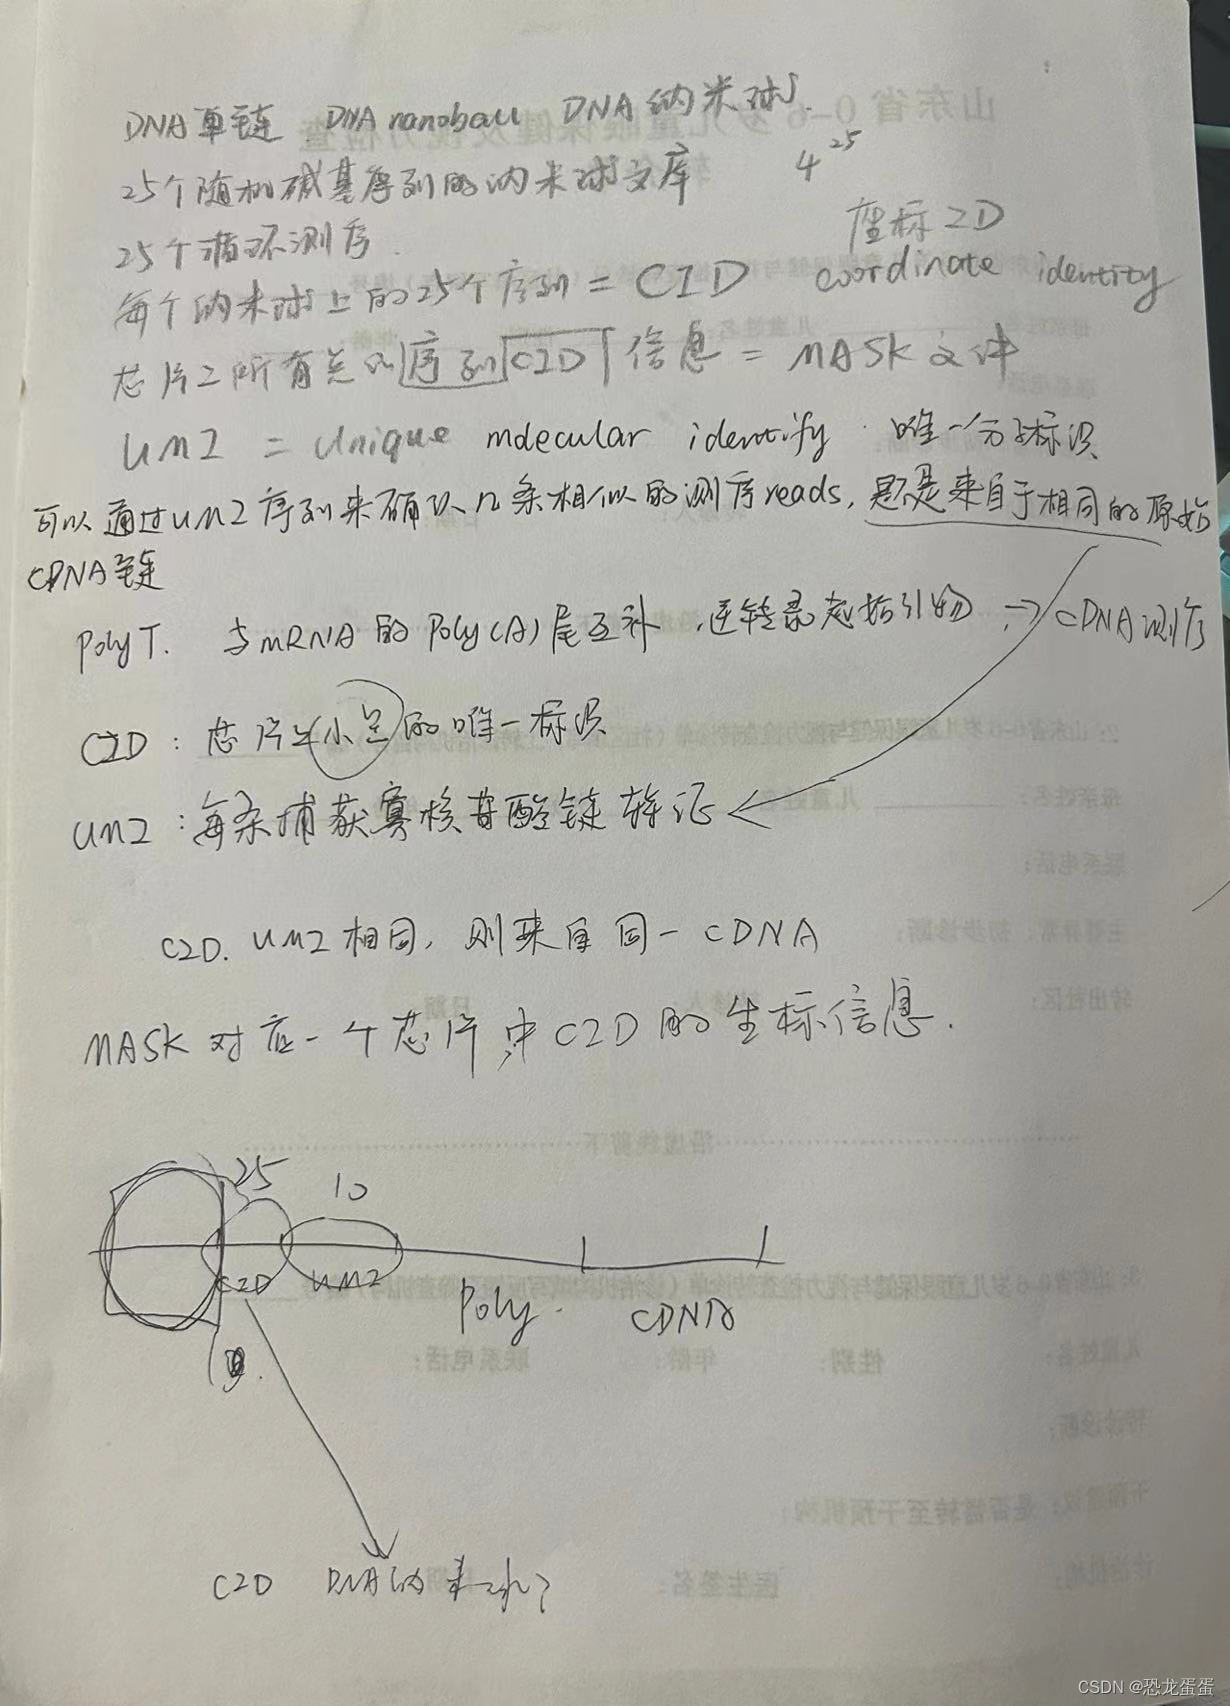 DNA单链 DNA nanoball DNA纳米球.
25个随机碱基序列的纳米球文库 4^25
25个循环测序.
座标ID
每个纳米球上的25个序列 = CID coordinate identity
芯片上所有点的序列CID信息 = MASK文件
UMI = Unique mdecular identify. 唯一分子标识
可以通过UMI序列来确认几条相似的测序reads, 是来自于相同的原始
CDNA链
Poly T. 与mRNA的Poly(A)尾互补, 逆转录起始引物, → CDNA测序
CID: 芯片上小点的唯一标识
UMI: 每条捕获寡核苷酸链特征
CID. UMI相同, 则来自同一CDNA
MASK对应一个芯片中CID的坐标信息.
25 10
CID UMI Poly. CDNA
CID DNA纳米球?
CSDN @恐龙蛋蛋